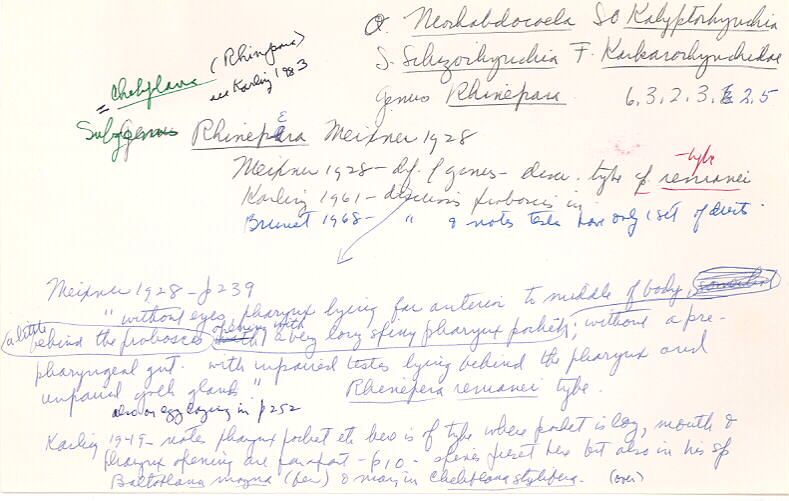 O. Neorhabdocoela SO Kalyptorhynchia
S. Schizorhynchia F. Karkarorhynchidae
Genus Rhinepara 6.3.2.3. 2.5
(Rhinepara)
see Karling 1983
= Cheloplana
Subgenus Rhinepera Meixner 1928
Meixner 1928 - df. genes - descr. type of remanei
- type
Karling 1961 - discusses proboscis in
Brunet 1968 - " & notes testa have only 1 set of
Meixner 1928 - p 239
" without eyes, pharynx lying far anterior to middle of body,
a little behind the proboscis opening with a very long spiny pharynx pocket; without a pre-
pharyngeal gut. with unpaired testes lying behind the pharynx and
unpaired yolk glands " Rhinepera remanei type.
also on egg laying in p 252
Karling 1949 - notes pharynx pocket etc here is of type where pocket is long, mouth &
pharynx opening are far apart - p10 - spines first here but also in his sp
Baltoplana magna (few) & many in Cheloplana stylifera. (over)